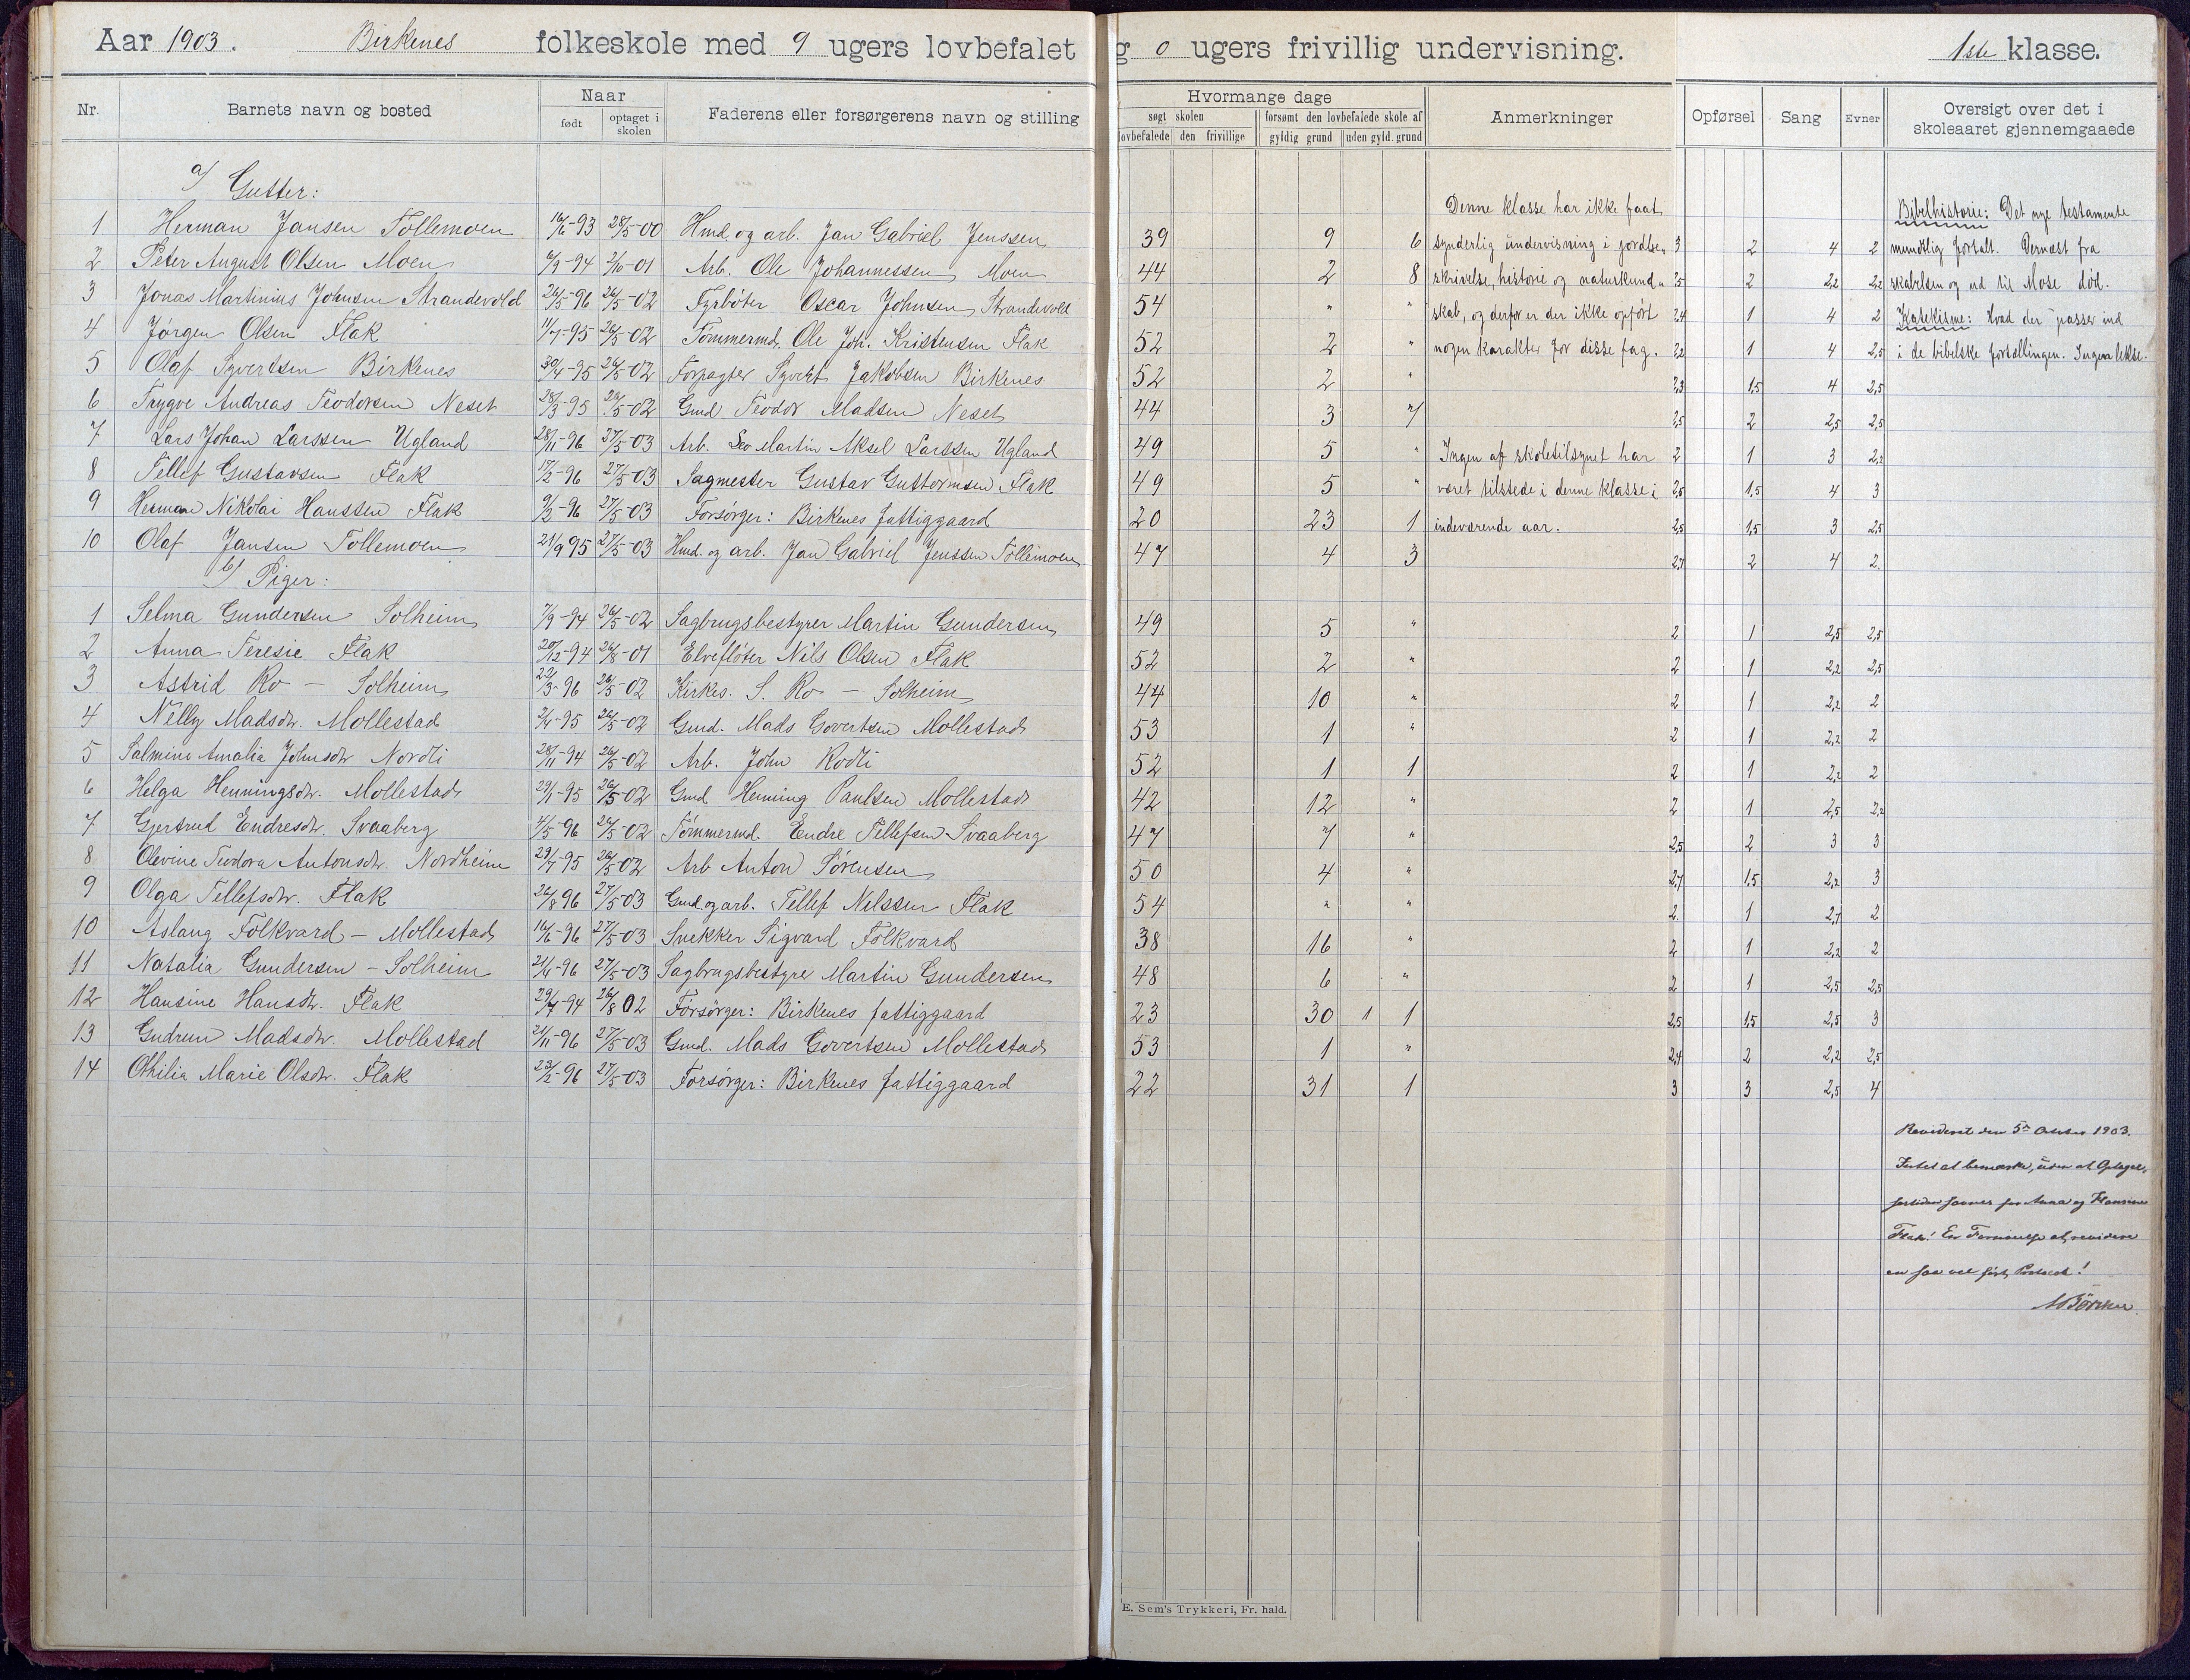 Aar 1903. Birkenes folkeskole med 9 ugers lovbefalet g 0 ugers frivillig undervisning. 1ste klasse.
Nr. Barnets navn og bosted Naar født optaget i skolen Faderens eller forsørgerens navn og stilling
Hvormange dage søgt skolen forsømt den lovbefalede skole af
lovbefalede den frivillige gyldig grund uden gyld. grund
Anmerkninger Opførsel Sang Evner Oversigt over det i skoleaaret gjennemgaaede
a/ Gutter:
1 Herman Jansen Tollemoen 16/6-93 28/5-00 Hmd. og arb. Jan Gabriel Jenssen 39 9 6 3 2 4 2
2 Peter August Olsen Moen 9/9-94 2/10-01 Arb. Ole Johannessen Moen 44 2 8 2,5 2 2,2 2,2
3 Jonas Martinius Johnsen Strandevold 26/5-96 26/5-02 Fyrbøter Oscar Johnsen Strandevold 54 " " 2,4 1 4 2
4 Jørgen Olsen Flak 11/7-95 26/5-02 Tømmermd. Ole Joh. Kristensen Flak 52 2 " 2,2 1 4 2,5
5 Olaf Syvertsen Birkenes 30/4-95 26/5-02 Forpagter Syvert Jakobsen Birkenes 52 2 " 2,3 1,5 4 2,5
6 Trygve Andreas Teodorsen Neset 28/3-95 26/5-02 Gmd Teodor Madsen Neset 44 3 7 2,5 2 2,5 2,5
7 Lars Johan Larssen Ugland 28/11-96 27/5-03 Arb. Leo Martin Aksel Larssen Ugland 49 5 " 2 1 3 2,2
8 Tellef Gustavsen Flak 17/2-96 27/5-03 Sagmester Gustav Guttormsen Flak 49 5 " 2,5 1,5 4 3
9 Herman Nikolai Hanssen Flak 9/2-96 27/5-03 Forsørger: Birkenes fattiggaard 20 23 1 2,5 1,5 3 2,5
10 Olaf Jansen Tollemoen 21/9 95 27/5-03 Hmd. og arb. Jan Gabriel Jenssen Tollemoen 47 4 3 2,7 2 4 2.
b/ Piger:
1 Selma Gundersen Solheim 7/9-94 26/5-02 Sagbrugsbestyrer Martin Gundersen 49 5 " 2 1 2,5 2,5
2 Anna Teresie Flak 20/12-94 26/8-01 Elvefløter Nils Olsen Flak 52 2 " 2 1 2,2 2,5
3 Astrid Ro - Solheim 22/3-96 26/5-02 Kirkes. S. Ro - Solheim 44 10 " 2 1 2,2 2
4 Nelly Madsdtr. Mollestad 2/4-95 26/5-02 Gmd. Mads Govertsen Mollestad 53 1 " 2 1 2,2 2
5 Salmine Amalia Johnsdtr Nordli 28/11-94 26/5-02 Arb. John Rodli 52 1 1 2 1 2,2 2
6 Helga Henningsdtr. Mollestad 29/1-95 26/5-02 Gmd Henning Paulsen Mollestad 42 12 " 2 1 2,5 2,2
7 Gjertrud Endresdtr. Svaaberg 4/5-96 26/5-02 Tømmermd. Endre Tellefsen Svaaberg 47 7 " 2,5 2 3 3
8 Olevine Teodora Antonsdtr. Nordheim 29/7-95 26/5-02 Arb Anton Sørensen 50 4 " 2,7 1,5 2,2 3
9 Olga Tellefsdtr. Flak 26/8 96 27/5 03 Gmd. og arb. Tellef Nelssen Flak 54 " " 2. 1 2,7 2
10 Aslaug Folkvard - Mollestad 16/6-96 27/5-03 Snekker Sigvard Folkvard 38 16 " 2 1 2,2 2
11 Natalia Gundersen - Solheim 21/4-96 27/5-03 Sagbrugsbestyre Martin Gundersen 48 6 " 2 1 2,5 2,5
12 Hansine Hansdtr. Flak 29/7-94 26/8 02 Forsørger: Birkenes fattiggaard 23 30 1 1 2,5 1,5 2,5 3
13 Gudrun Madsdtr. Mollestad 21/11-96 27/5-03 Gmd. Mads Govertsen Mollestad 53 1 " 2,4 2 2,2 2,5
14 Othilia Marie Olsdtr. Flak 23/2-96 27/5-03 Forsørger: Birkenes fattiggaard 22 31 1 3 3 2,5 4
Denne klasse har ikke faat
synderlig undervisning i jordbe-
skrivelse, historie og naturkund-
skab, og derfor er der ikke opført
nogen karakter for disse fag.
Ingen af skoletilsynet har
været tilstede i denne klasse i
indeværende aar.
Bibelhistorie: Det nye testamente
mundtlig fortalt. Dernæst fra
skabelsen og ud til Mose død.
Katekisme: Hvad der passer ind
i de bibelske fortællingen. Ingen lekse.
Revideret den 5te Oktober 1903.
Intet at bemærke, uden at Optagel-
sestiden savnes for Anna og Hansine
Flak! En Fornøielse at revidere
en saa velført Protocol!
E. Sem's Trykkeri, Fr. hald.